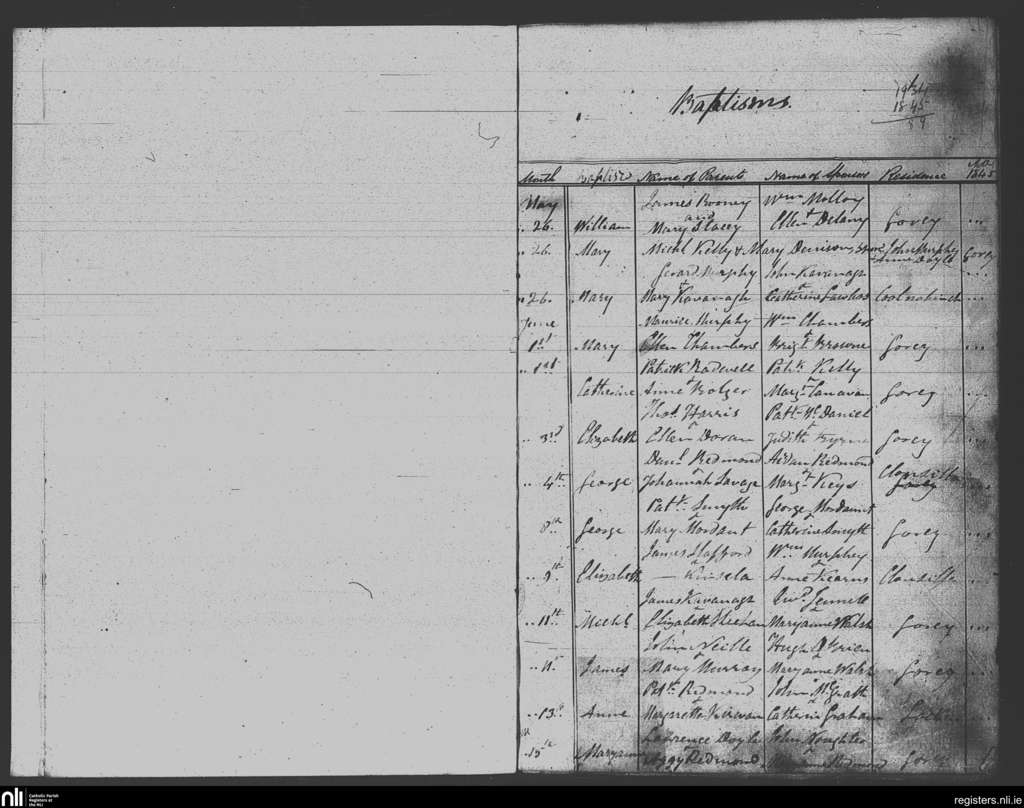 Baptisms.
1934
1845
89
Month Baptised Name of Parents Name of Sponsors Residence A.D. 1845
May James Rooney Wm Molloy
" 26. William and Mary Stacey + Ellen Delany Gorey ...
" 26. Mary Michl Kelly & Mary Denison, Spors John Murphy + Anne Doyle Gorey
Gerard Murphy John Kavanagh ...
" 26. Mary + Mary Kavanagh + Catherine ...
June Maurice Murphy Wm Chambers
1st Mary + Ellen Chambers + Brigt Browne Gorey ...
" 1st Patrick Radwell Patk Kelly
Catherine + Anne Bolger + Margt Canavan Gorey ...
Thos Harris Patk McDaniel
" 3rd Elizabeth + Ellen Doran + Judith Byrne Gorey ...
Danl Redmond Aidan Redmond
" 4th George + Johannah Savage + Margt Keys Clonsilla ...
Patk Smyth George Mordaunt
8th George + Mary Mordant + Catherine Smyth Gorey ...
James Stafford Wm Murphy
" 9th Elizabeth + — Kinsela + Anne Kearns Clonsilla ...
James Kavanagh
" 11th Michl + Elizabeth Sheehan + Maryanne Walsh Gorey ...
John Neille Hugh O'Brien
" 11th James + Mary Murray + Maryanne Walsh Gorey ...
Patk Redmond John McGrath
" 13th Anne + Margretta Kirwan + Catherine Graham
Lawrence Doyle John Naughter
" 15th Maryanne + Aggy Redmond + Redmond Gorey
nli Catholic Parish Registers at the NLI
registers.nli.ie